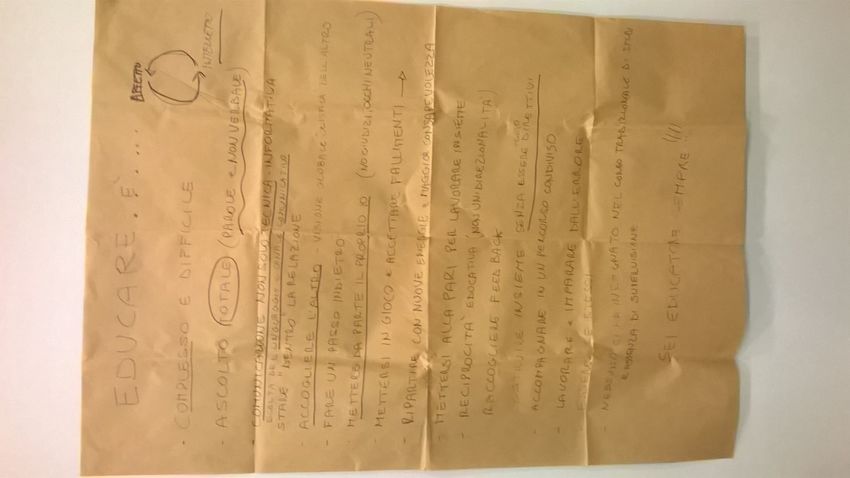 EDUCARE . È . . . .
- COMPLESSO E DIFFICILE
AFFETTO
INTELLETTO
- ASCOLTO TOTALE (PAROLE E NON VERBALE)
- COMUNICAZIONE NON SOLO TECNICA - INFORMATIVA
SCELTA DEL LINGUAGGIO
STARE "DENTRO" LA RELAZIONE
- ACCOGLIERE L'ALTRO - VISIONE GLOBALE DELL'ALTRO
- FARE UN PASSO INDIETRO
- METTERE DA PARTE IL PROPRIO IO (NO GIUDIZI, OCCHI NEUTRALI)
- METTERSI IN GIOCO E ACCETTARE FALLIMENTI →
- RIPARTIRE CON NUOVE ENERGIE E MAGGIOR CONSAPEVOLEZZA
- METTERSI ALLA PARI PER LAVORARE INSIEME
- RECIPROCITA' EDUCATIVA (NO UNIDIREZIONALITA')
RACCOGLIERE FEEDBACK
COSTRUIRE INSIEME SENZA ESSERE TROPPO DIRETTIVI
- ACCOMPAGNARE IN UN PERCORSO CONDIVISO
- LAVORARE E IMPARARE DALL'ERRORE
ESSERE SE STESSI
- NESSUNO CI HA INSEGNATO NEL CORSO TRADIZIONALE DI STUDI
E ASSENZA DI SUPERVISIONE
SEI EDUCATORE SEMPRE !!!